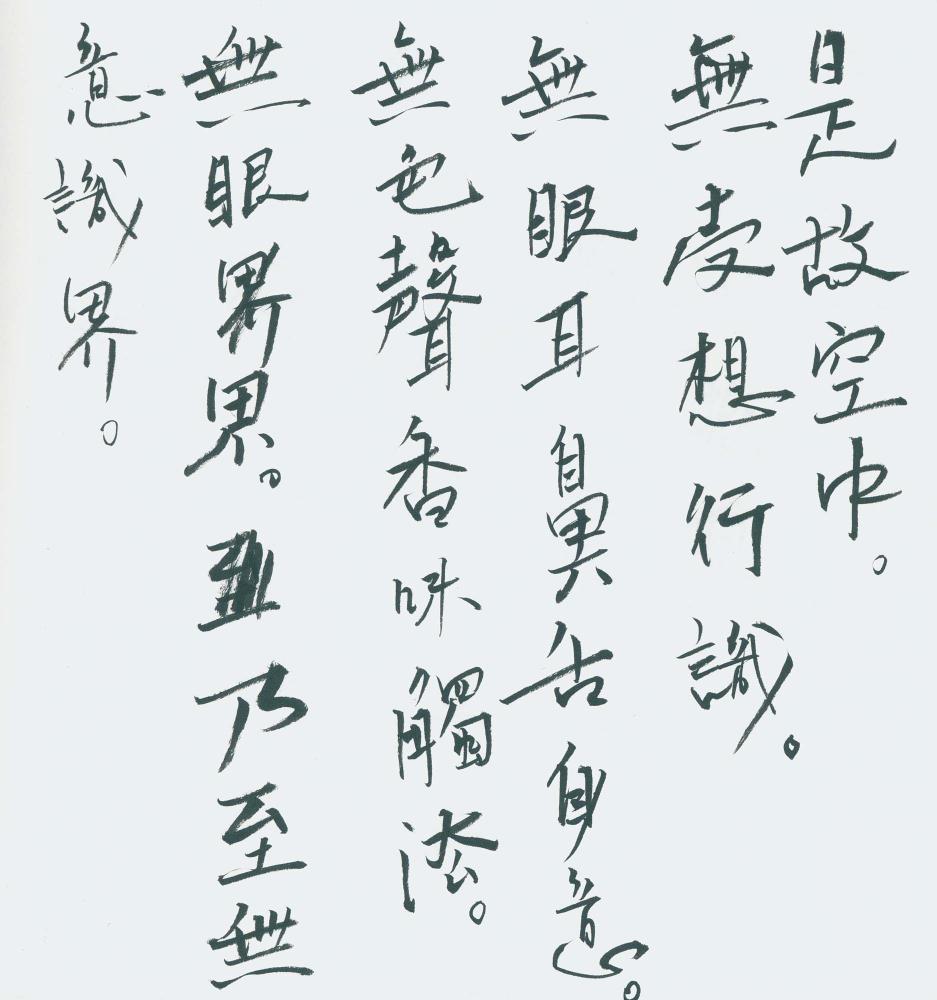 是故空中。
無受想行識。
無眼耳鼻舌身意。
無色聲香味觸法。
無眼界界。乃至無
意識界。